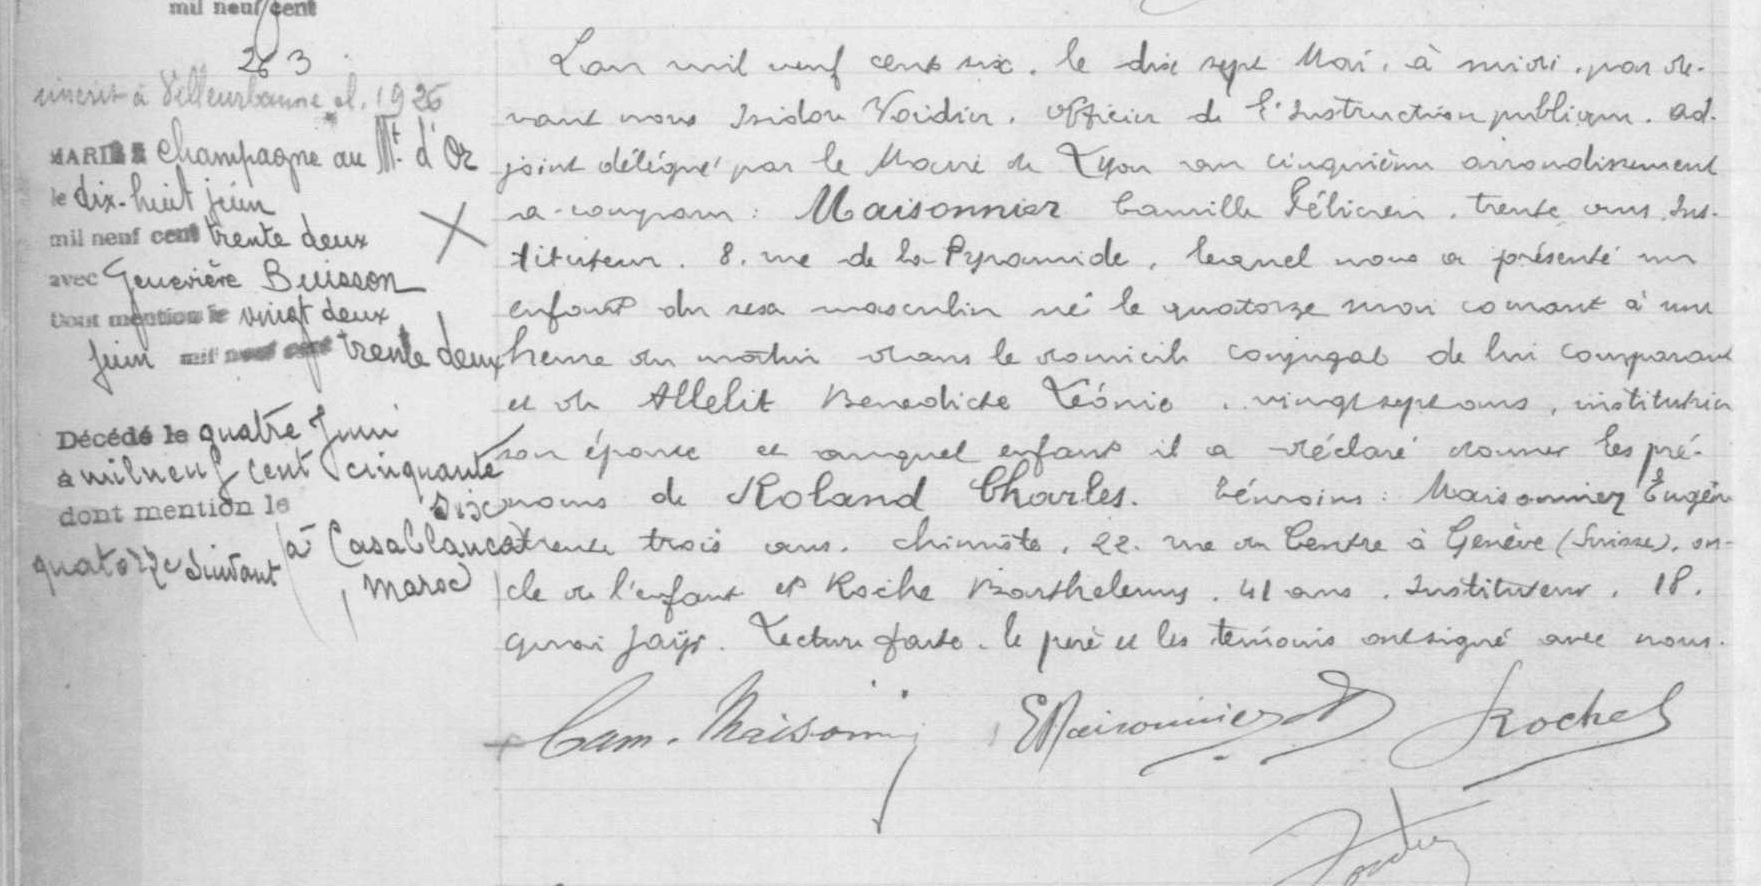 mil neuf cent
263
inscrit à Villeurbanne cl. 1926
MARIÉ à Champagne au Mt. d'Or
le dix-huit juin
mil neuf cent trente deux
avec Geneviève Buisson
Dont mention le vingt deux
juin mil neuf cent trente deux
Décédé le quatre Juin
a mil neuf cent cinquante
six
dont mention le
à Casablanca
quatorze suivant
Maroc
L'an mil neuf cent six, le dix sept Mai, à midi, par de-
vant nous Isidore Voidier, officier de l'Instruction publique, ad-
joint délégué par le Maire de Lyon au cinquième arrondissement
a comparu : Maisonnier Camille Félicien, trente ans, Ins-
tituteur, 8, rue de la Pyramide, lequel nous a présenté un
enfant du sexe masculin né le quatorze mai courant à une
heure du matin dans le domicile conjugal de lui comparant
et de Allelit Benedicte Léonie, vingt sept ans, institutrice
son épouse et auquel enfant il a déclaré donner les pré-
noms de Roland Charles. Témoins : Maisonnier Eugène
trente trois ans, chimiste, 22, rue du Centre à Genève (Suisse), on-
cle de l'enfant et Roche Barthelemy, 41 ans, Instituteur, 18,
quai Jaÿr. Lecture faite, le père et les témoins ont signé avec nous.
Cam. Maisonnier EMaisonnier Roche